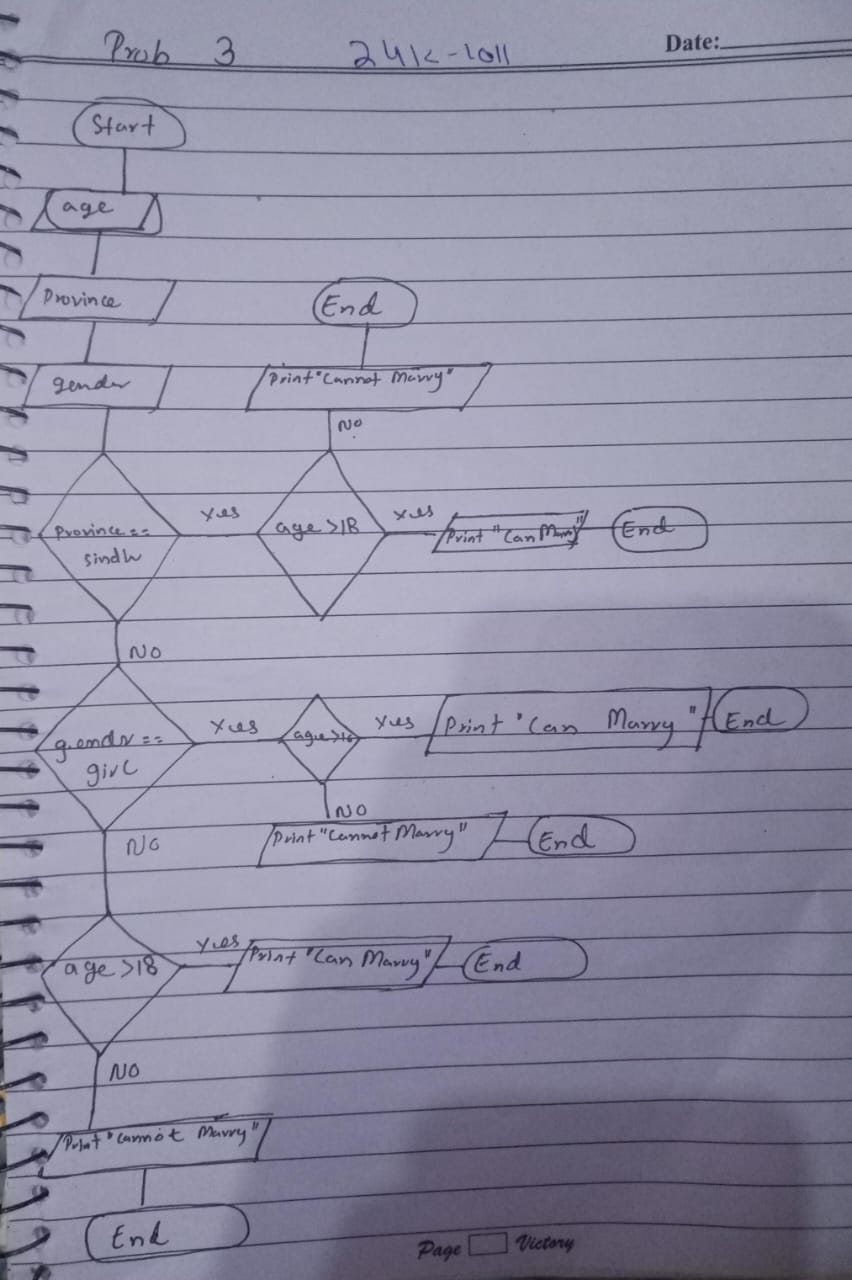 Prob 3 24K-1011 Date:
Start
age
Province
End
gender
Print "Cannot Marry"
NO
Province ==
sindh
Yes
age >18
Yes
Print "Can Marry"
End
NO
gender ==
girl
Yes
age >16
Yes
Print "Can Marry"
End
NO
Print "Cannot Marry"
End
NO
age >18
Yes
Print "Can Marry"
End
NO
Print "Cannot Marry"
End
Page Victory